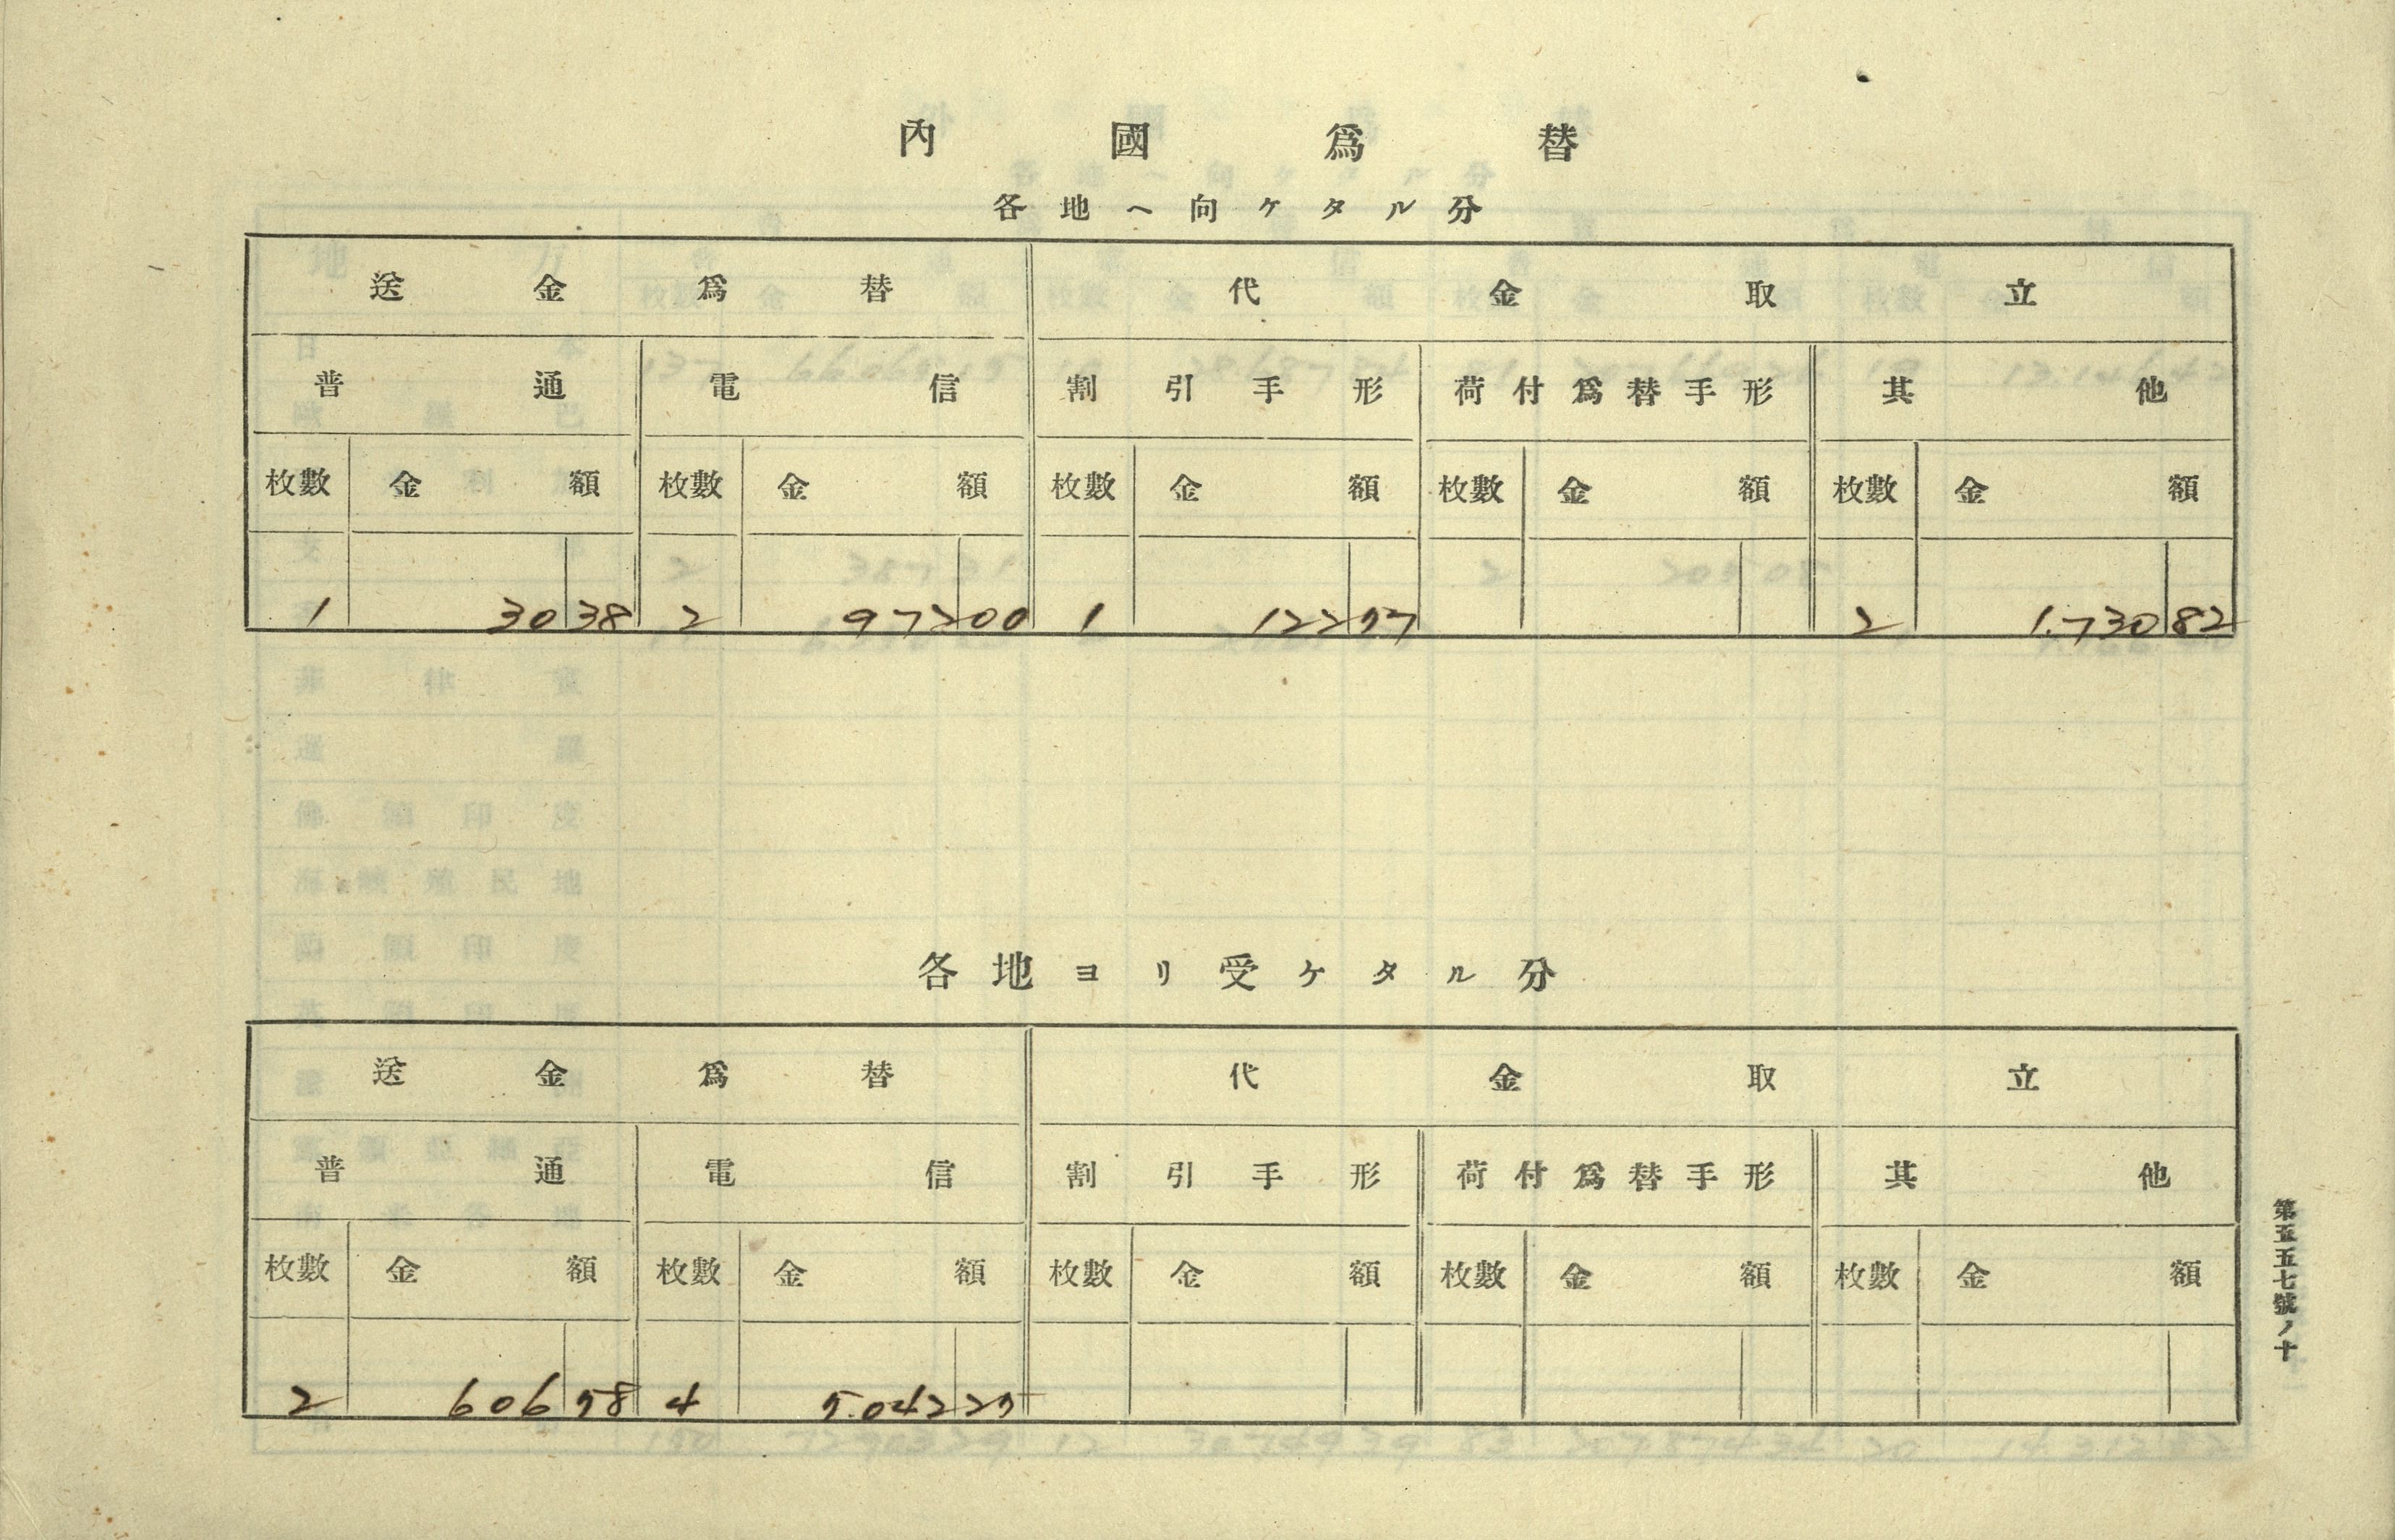 內國爲替
各地ヘ向ケタル分
送金爲替 代金取立
普通 電信 割引手形 荷付爲替手形 其他
枚數 金額 枚數 金額 枚數 金額 枚數 金額 枚數 金額
1 30 38 2 972 00 1 122 57 2 1.730 82
各地ヨリ受ケタル分
送金爲替 代金取立
普通 電信 割引手形 荷付爲替手形 其他
枚數 金額 枚數 金額 枚數 金額 枚數 金額 枚數 金額
2 606 58 4 5.042 25
第五五七號ノ十